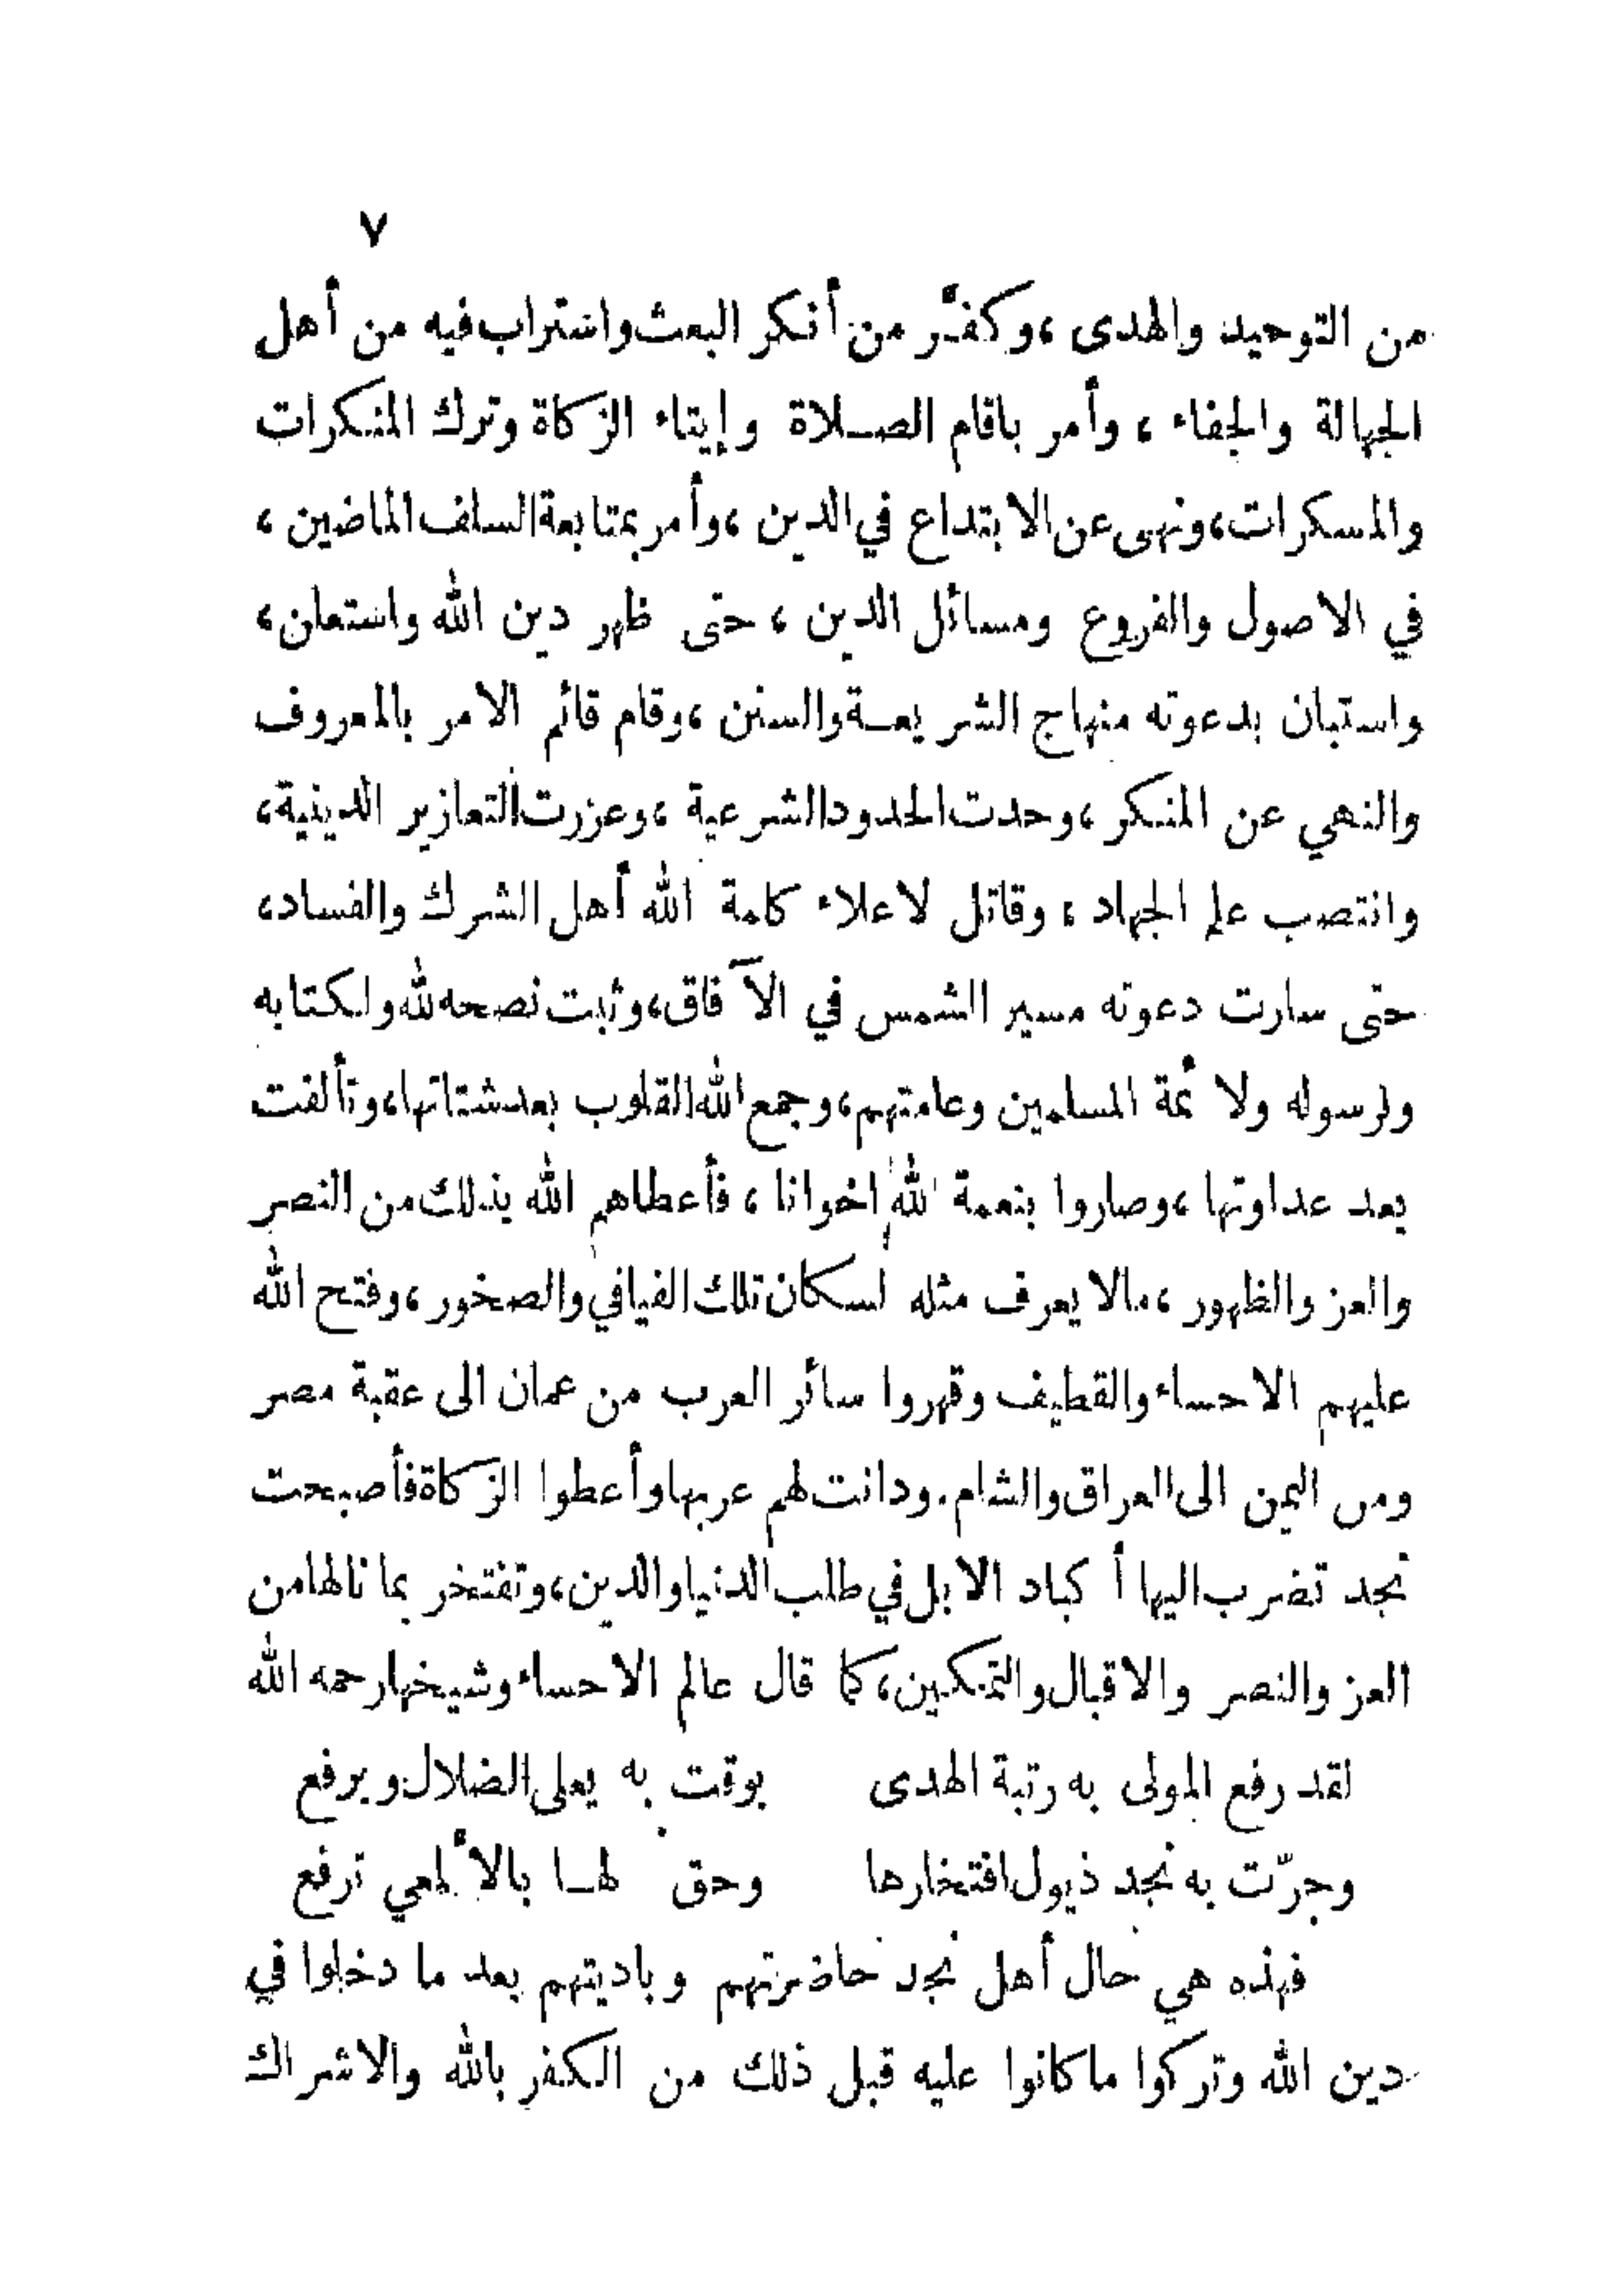 ٧
من التوحيد والهدى ، وكفَّر من أنكر البعث واستراب فيه من أهل
الجهالة والجفاء ، وأمر باقام الصلاة وإيتاء الزكاة وترك المنكرات
والمسكرات، ونهى عن الابتداع في الدين ، وأمر بمتابعة السلف الماضين ،
في الاصول والفروع ومسائل الدين ، حتى ظهر دين الله واستعلن ،
واستبان بدعوته منهاج الشريعة والسنن ، وقام قائم الامر بالمعروف
والنهي عن المنكر ، وحدت الحدود الشرعية ، وعزرت التعازير الدينية ،
وانتصب علم الجهاد ، وقاتل لاعلاء كلمة الله أهل الشرك والفساد ،
حتى سارت دعوته مسير الشمس في الآفاق، وثبت نصحه لله ولكتابه
ولرسوله ولأئمة المسلمين وعامتهم، وجمع الله القلوب بعد شتاتها، وتألفت
بعد عداوتها ، وصاروا بنعمة الله اخوانا ، فأعطاهم الله بذلك من النصر
والعز والظهور ، مالا يعرف مثله لسكان تلك الفيافي والصخور ، وفتح الله
عليهم الاحساء والقطيف وقهروا سائر العرب من عمان الى عقبة مصر
ومن اليمن الى العراق والشام. ودانت لهم عربها وأعطوا الزكاة فأصبحت
نجد تضرب اليها أكباد الابل في طلب الدنيا والدين، وتفتخر بما نالها من
العز والنصر والاقبال والتمكين، كما قال عالم الاحساء وشيخها رحمه الله
لقد رفع المولى به رتبة الهدى بوقت به يعلى الضلال ويرفع
وجرّت به نجد ذيول افتخارها وحق لها بالألمعي ترفع
فهذه هي حال أهل نجد حاضرتهم وباديتهم بعد ما دخلوا في
دين الله وتركوا ما كانوا عليه قبل ذلك من الكفر بالله والاشراك